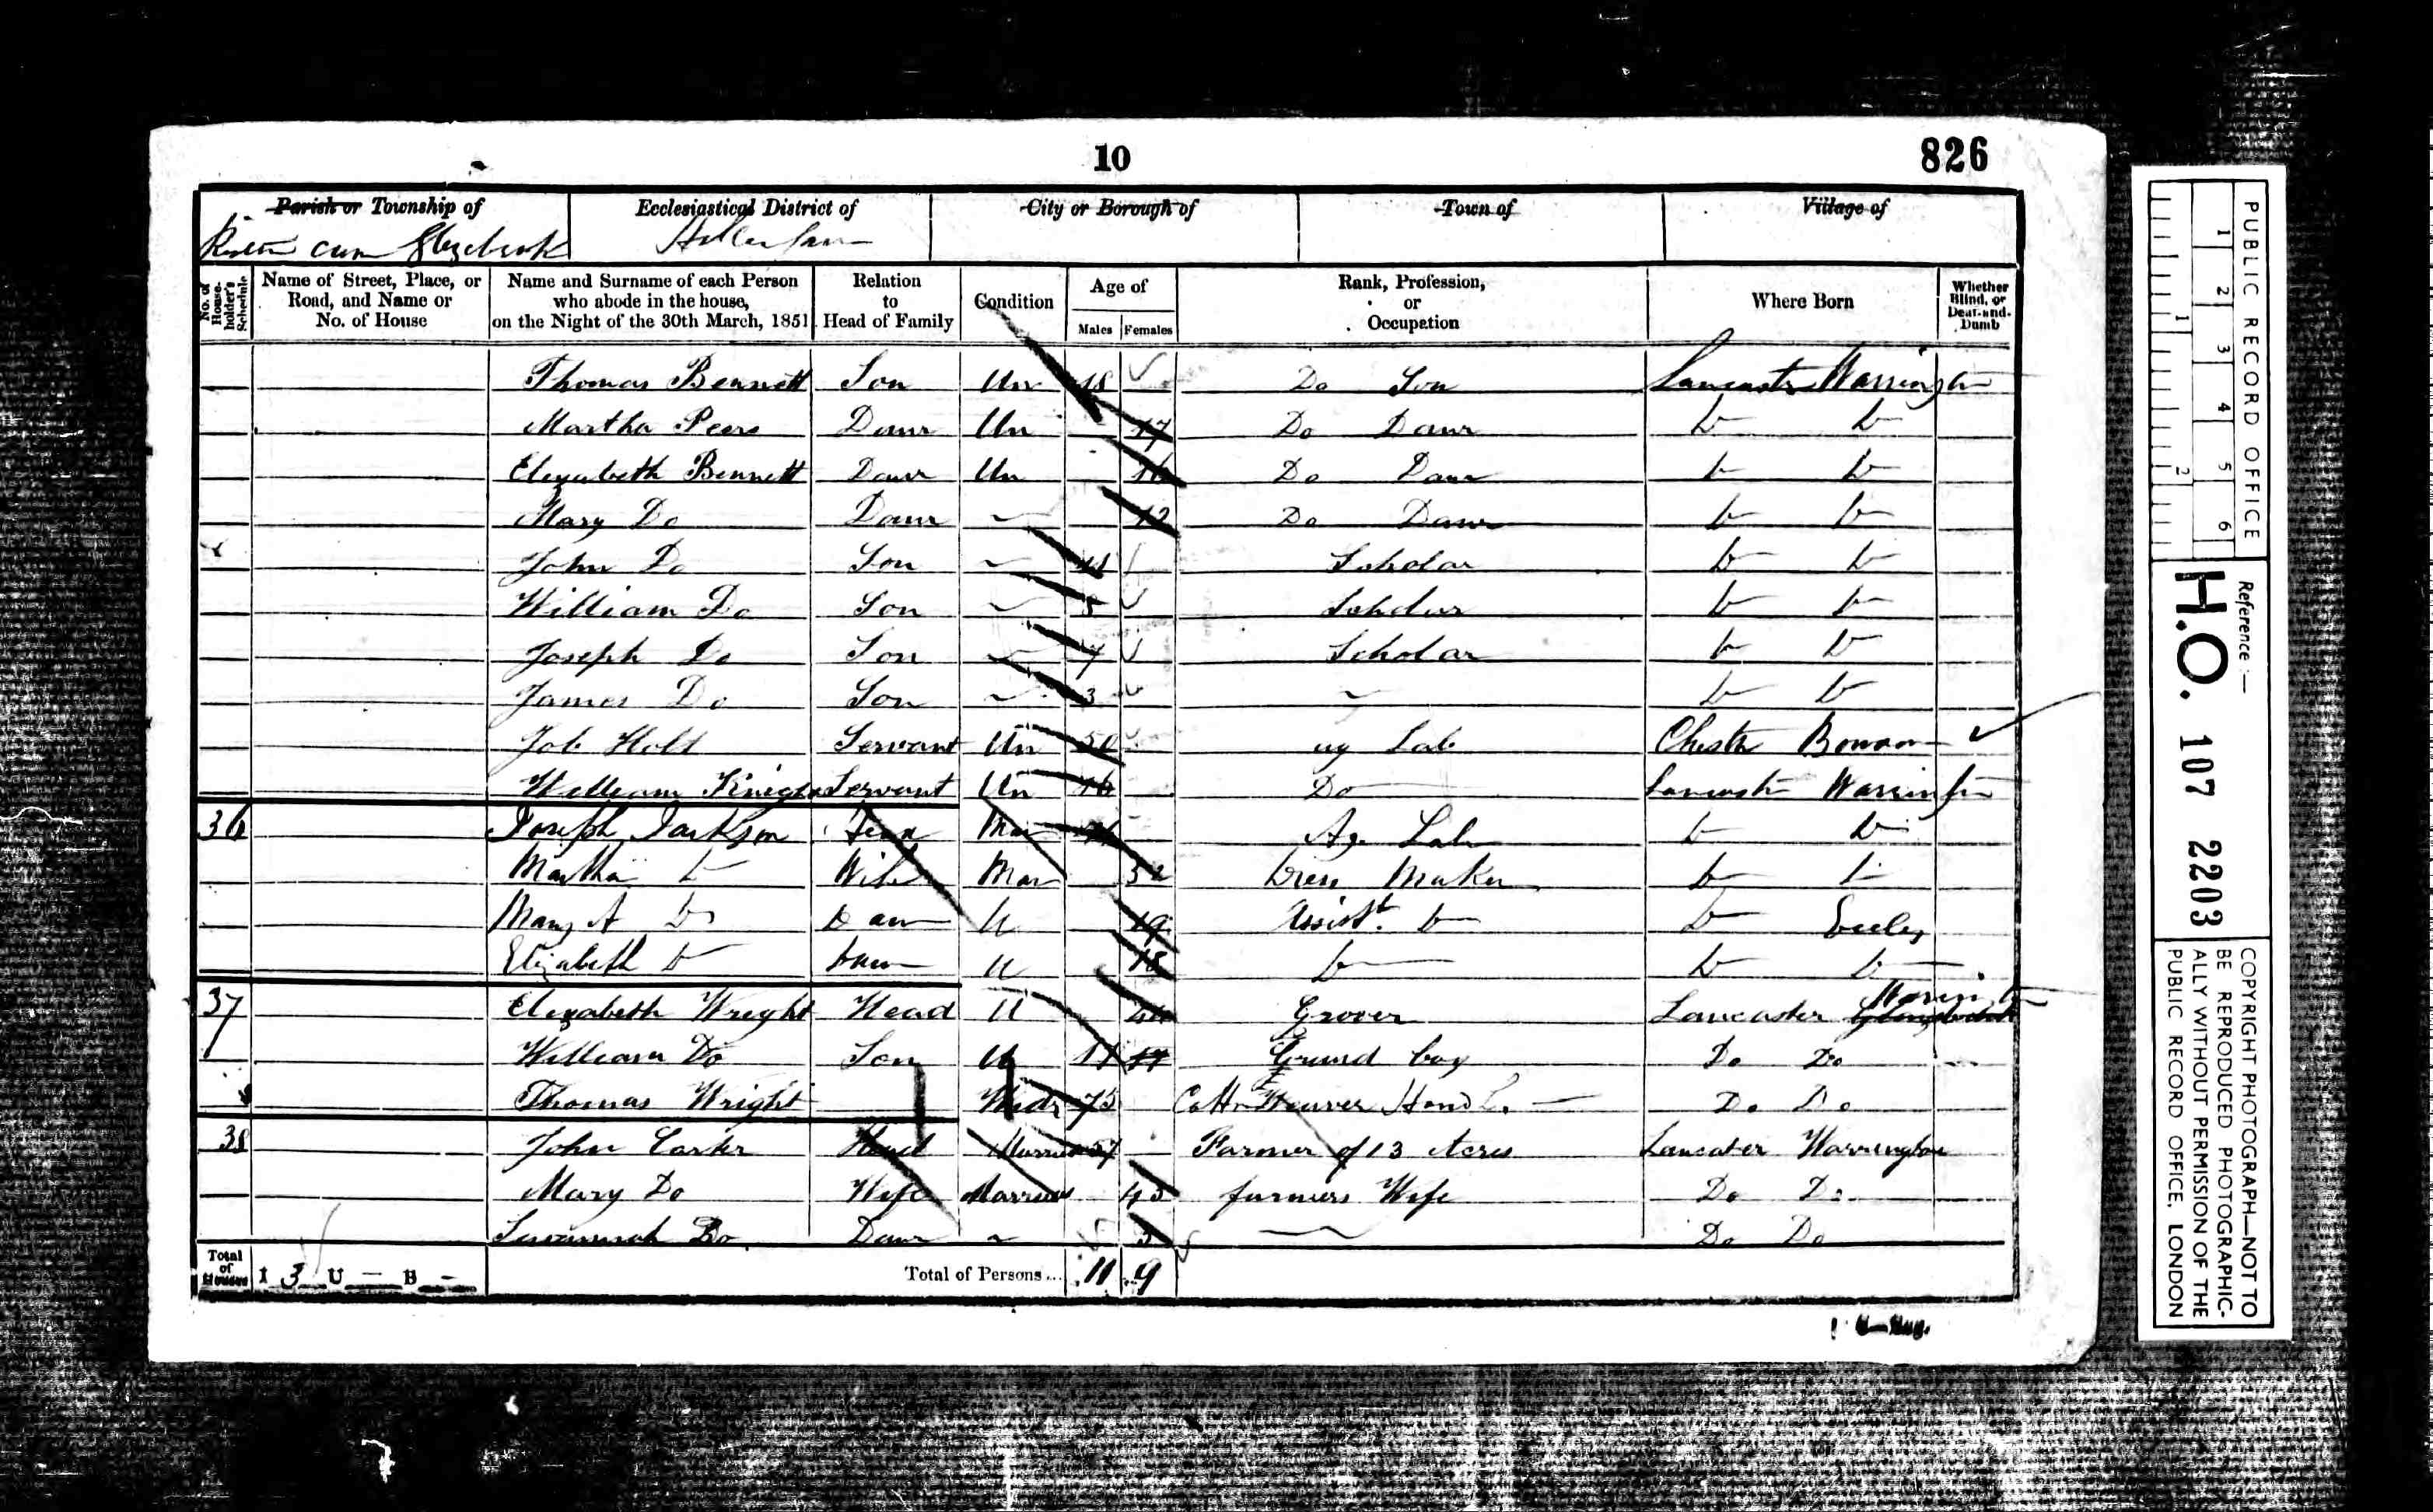 10
826
Parish or Township of Ecclesiastical District of City or Borough of Town of Village of
cum Glazebrook
No. of House-holder's Schedule Name of Street, Place, or Road, and Name or No. of House Name and Surname of each Person who abode in the house, on the Night of the 30th March, 1851 Relation to Head of Family Condition Age of Males Females Rank, Profession, or Occupation Where Born Whether Blind, or Deaf-and-Dumb
Thomas Bennett Son Un 18 Do Son Lancaster Warrington
Martha Peers Daur Un 17 Do Daur Do Do
Elizabeth Bennett Daur Un 16 Do Daur Do Do
Mary Do Daur 12 Do Daur Do Do
John Do Son 11 Scholar Do Do
William Do Son Scholar Do Do
Joseph Do Son 7 Scholar Do Do
James Do Son 3 Do Do
Job Holt Servant Un 50 Ag Lab Chester
William Knight Servant Un 16 Do Lancaster Warrington
36 Joseph Jackson Head Mar Ag. Lab Do Do
Martha Do Wife Mar 52 Dress Maker Do Do
Mary A Do Daur U 19 Assist. Do Do Eccles
Elizabeth Do Daur U 18 Do Do Do
37 Elizabeth Wright Head U 44 Grocer Lancaster Warrington
William Do Son U 11 Do Do
Thomas Wright Widr 75 Cotton Weaver Hand L. Do Do
38 John Carter Head Married 57 Farmer of 13 Acres Lancaster Warrington
Mary Do Wife Married 43 farmers Wife Do Do
Susannah Do Daur 5 Do Do
Total of Houses I 3 U — B - Total of Persons... 11 9
PUBLIC RECORD OFFICE
1 2 3 4 5 6
1 2
Reference :—
H.O. 107 2203
COPYRIGHT PHOTOGRAPH—NOT TO
BE REPRODUCED PHOTOGRAPHIC-
ALLY WITHOUT PERMISSION OF THE
PUBLIC RECORD OFFICE, LONDON